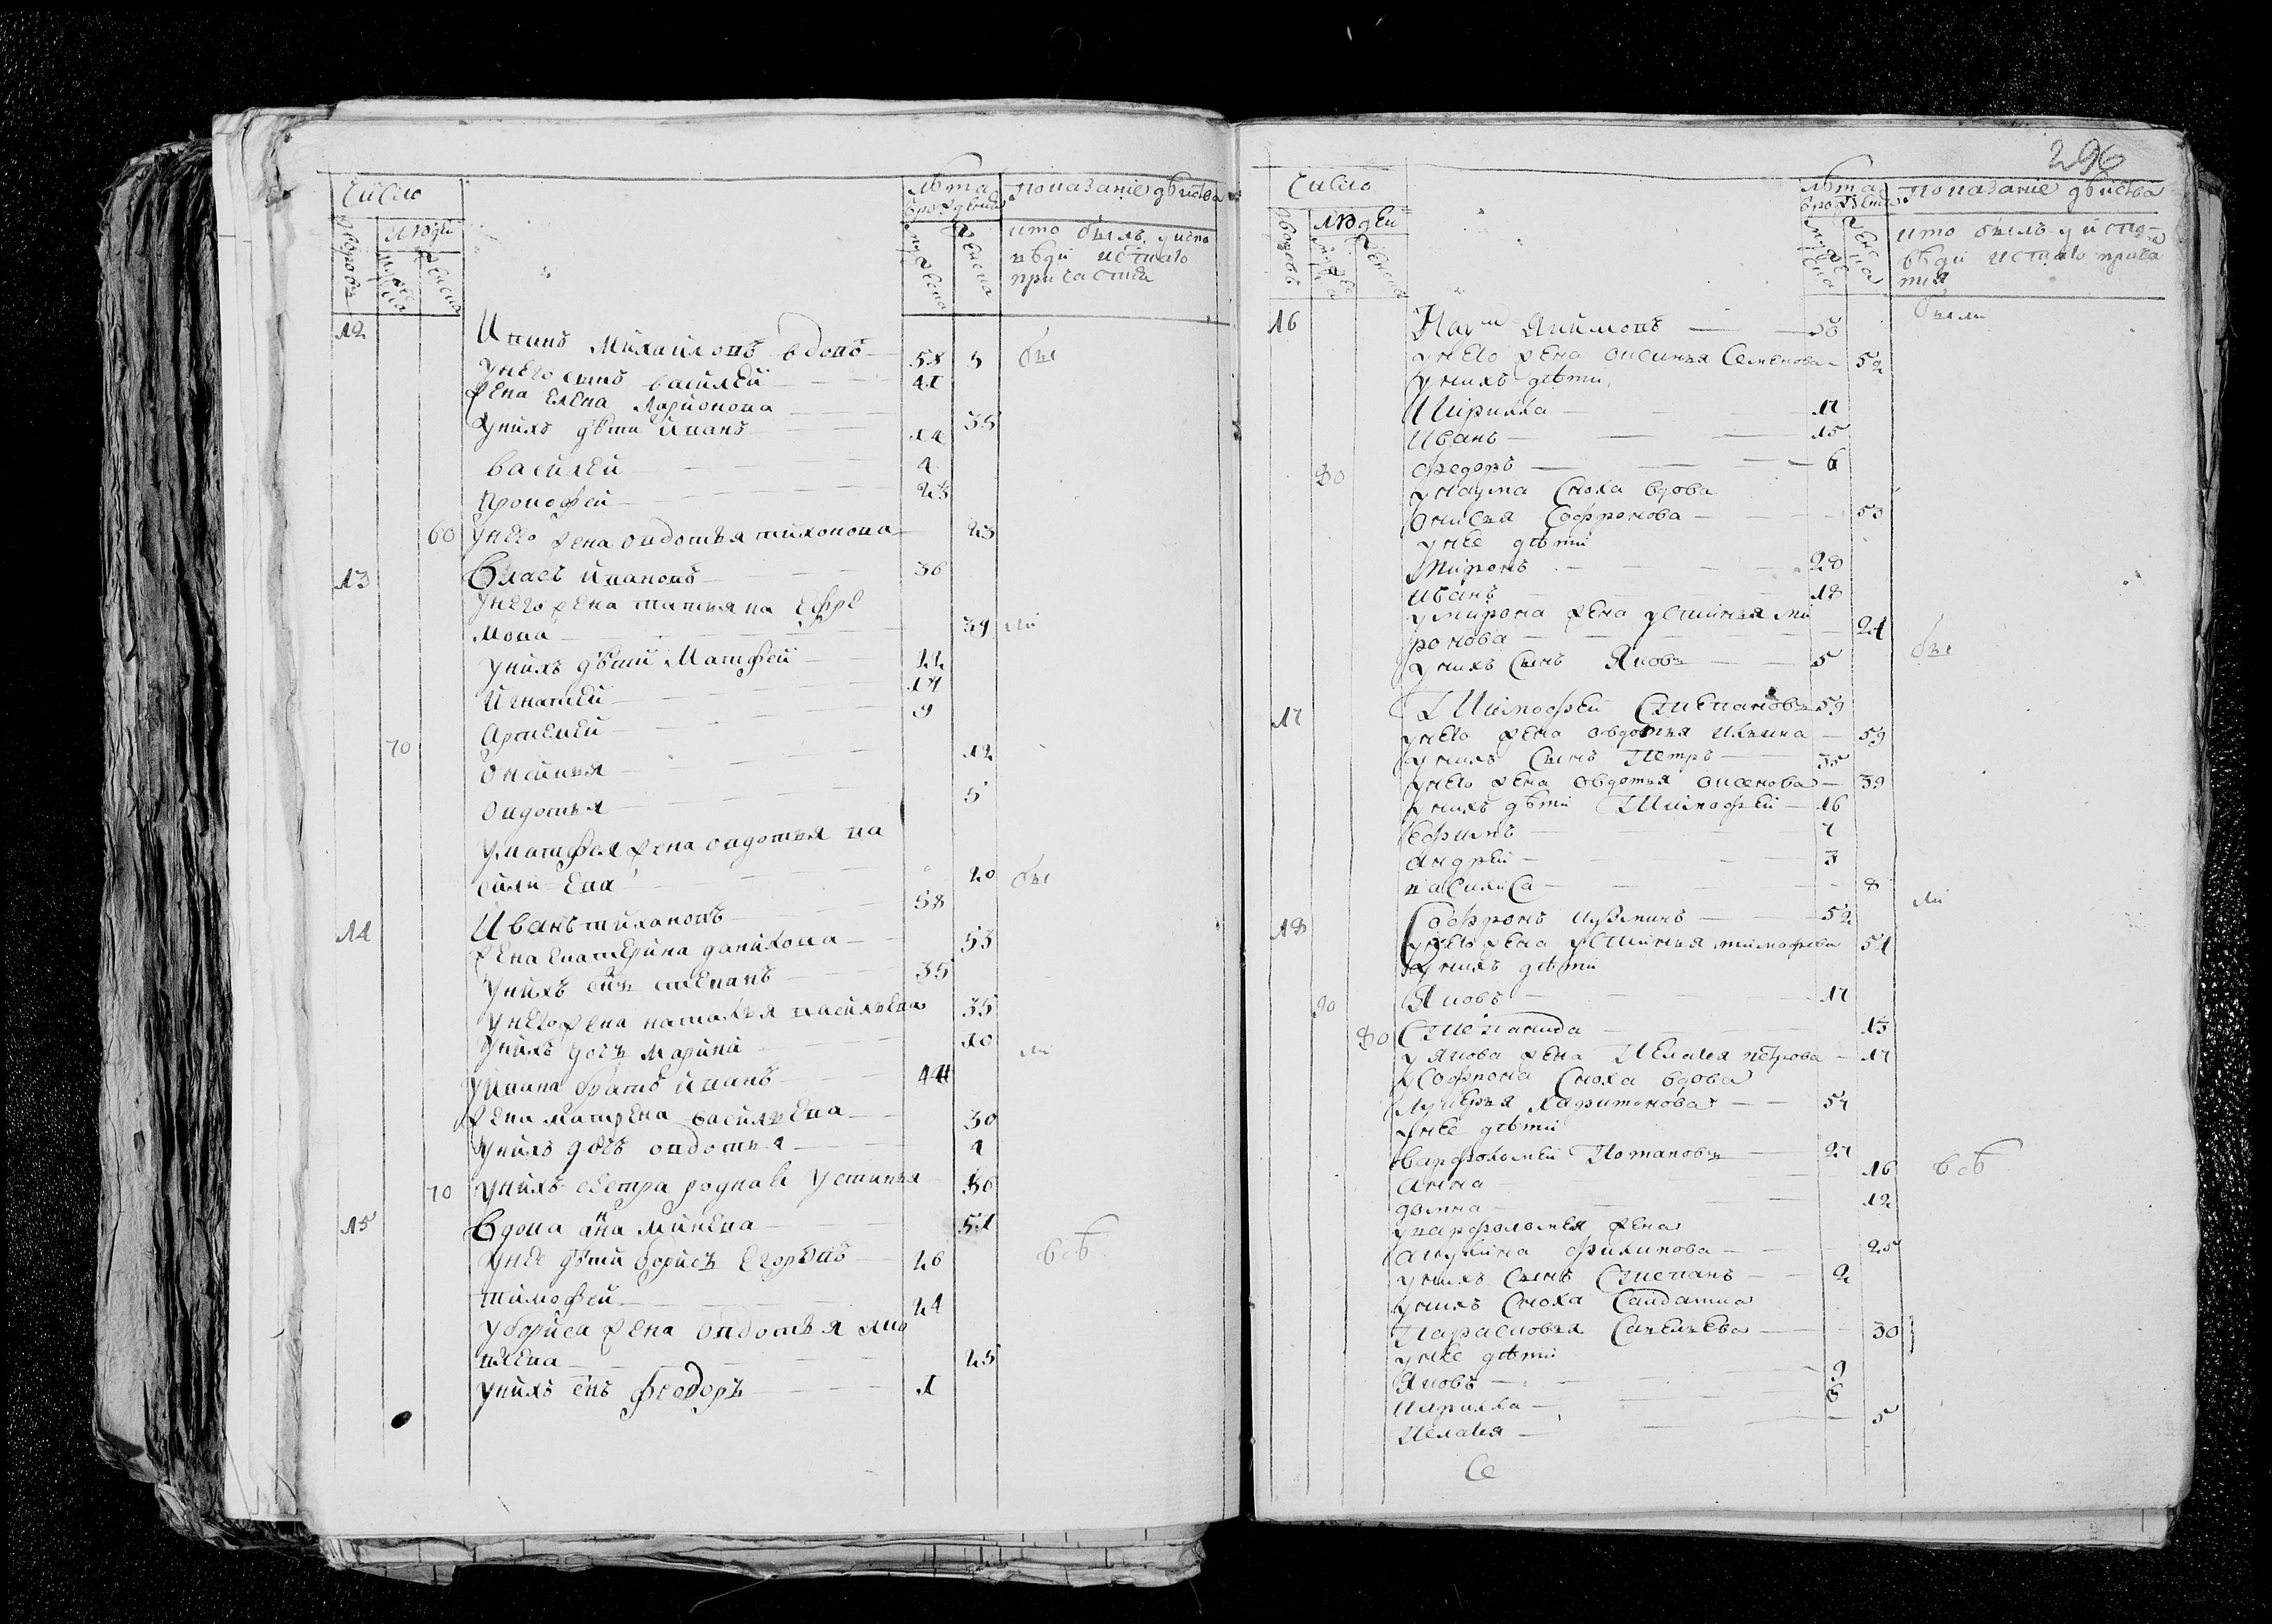 Число
лѣта
показаніе дѣйства
дворовъ
людей
рожденія
мужеска
женска
мужеска
женска
кто былъ у испо
вѣди и стаго
причастия
12
Иванъ Михайловъ вдовъ 58 бы
У него сынъ василей 41
жена елена Ларионова 35
У нихъ дѣти иванъ 14
василей 4
прокофей 23
60 У него жена овдотья тихонова 23
13 Власъ ивановъ 36
У него жена татьяна ефре
мова 39 ли
У нихъ дѣти Матфей 22
Игнатей 17
70 Артемей 9
Оксинья 12
Овдотья 5
У матфея жена овдотья ва
силь-ева 20 бы
14 Иванъ тихановъ 58
жена екатерина данилова 53
У нихъ снъ степанъ 35
У него жена наталья васильева 35
У нихъ дочь Марина 10 ли
У ивана братъ иванъ 44
жена матрена васильева 30
У нихъ дочь овдотья 4
70 У нихъ сестра роднаѣ Устинья 36
15 Вдова анна микева 51
У нее дѣти борисъ егоровъ 26 всѣ
тимофей 24
У бориса жена овдотья яко
влева 25
У нихъ снъ феодоръ 1
296
Число
лѣта
показаніе дѣйства
дворовъ
людей
врожденія
мужеска
женска
мужеска
женска
кто былъ у испо-
вѣди и стаго прича
тия
16 Наум Якимовъ 56 были
у него жена оксинья Семенова 52
у нихъ дѣти
Кирилла 17
Иванъ 15
80 федоръ 6
У наума сноха вдова
Онисья Софронова 53
у нее дѣти
Миронъ 28
иванъ 18
у мирона жена устинья ми
ронова 24
у нихъ сынъ Яковъ 5 бы
17 Тимофей Степановъ 59
у него жена овдотья ильина 59
у нихъ сынъ Петръ 35
у него жена овдотья аксенова 39
у нихъ дѣти Тимофей 16
ефимъ 7
андрей 3
василиса 8
18 Софронъ кузминъ 52 ли
у него жена устинья тимофеева 51
у нихъ дѣти
90 Яковъ 17
80 Степанида 13
у якова жена Пелагея петрова 17
у Софрона сноха вдова
Лукерья харитонова 57
у нее дѣти
варфоломей Потаповъ 27
анна 16 всѣ
домна 12
у варфоломея жена
акулина филипова 25
у нихъ сынъ Степанъ 2
у нихъ сноха Салдатка
Парасковья Савельева 30
у нее дѣти
Яковъ 9
кирилла 6
Пелагея 5
Се